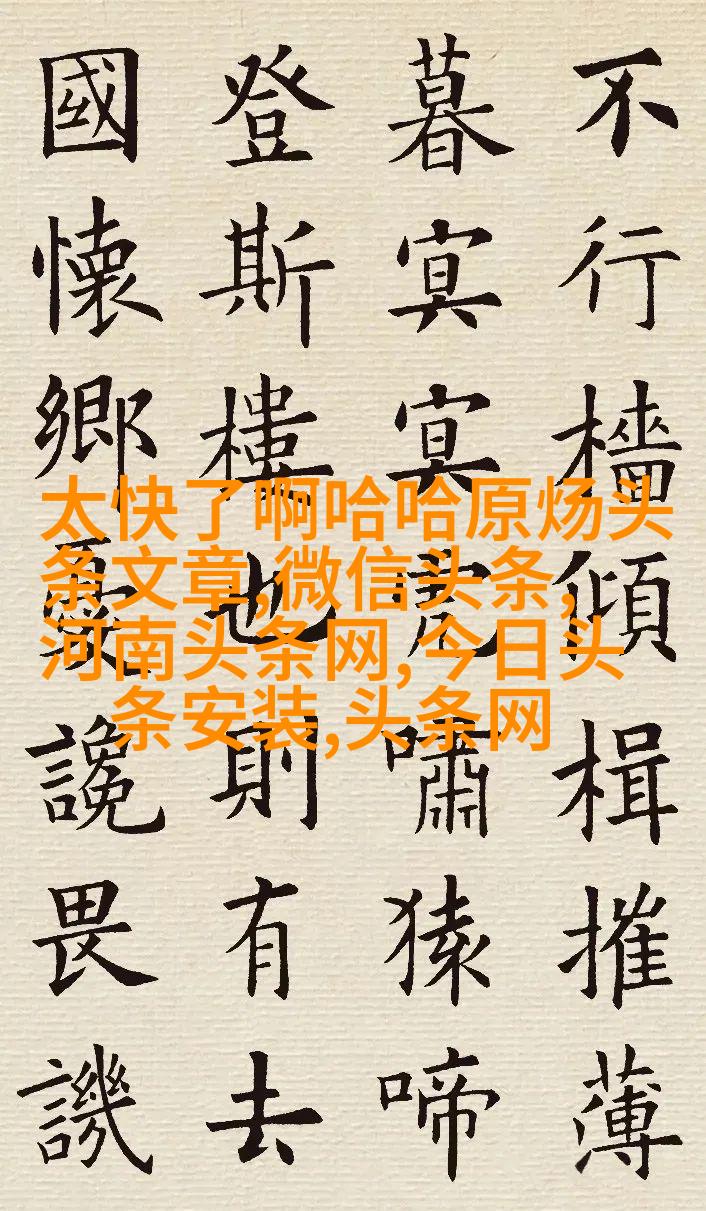 不行檣傾楫摧薄
暮冥冥虎嘯猿啼
登斯樓也則有去
國懷鄉憂讒畏譏
太快了啊哈哈原炀头
条文章,微信头条,
河南头条网,今日头
条安装,头条网